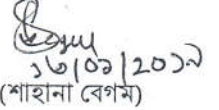 ১৬/০১/2০১৯
(শাহানা বেগম)